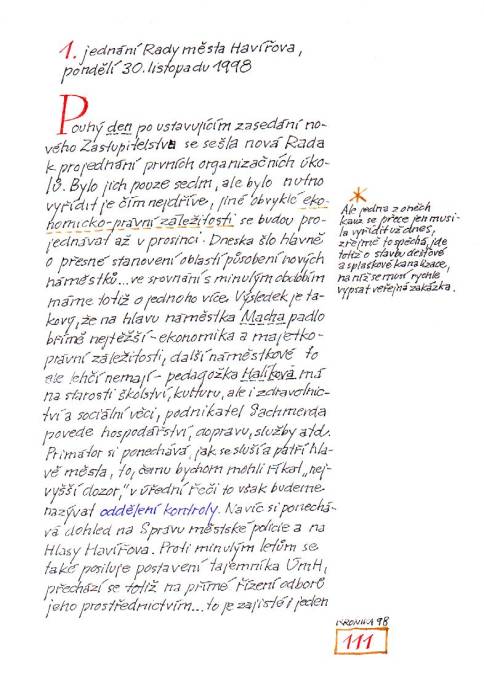 1. jednání Rady města Havířova,
pondělí 30. listopadu 1998
Pouhý den po ustavujícím zasedání no-
vého Zastupitelstva se sešla nová Rada
k projednání prvních organizačních úko-
lů. Bylo jich pouze sedm, ale bylo nutno
vyřídit je čím nejdříve, jiné obvyklé eko-
nomicko-právní záležitosti se budou pro-
jednávat až v prosinci. Dneska šlo hlavně
o přesné stanovení oblastí působení nových
náměstků... ve srovnání s minulým obdobím
máme totiž o jednoho více. Výsledek je ta-
kový, že na hlavu náměstka Macha padlo
břímě nejtěžší - ekonomika a majetko-
právní záležitosti, další náměstkové to
ale lehčí nemají - pedagožka Halíková má
na starosti školství, kulturu, ale i zdravotnic-
tví a sociální věci, podnikatel Bachmerda
povede hospodářství, dopravu, služby atd.
Primátor si ponechává, jak se sluší a patří hla-
vě města, to, čemu bychom mohli říkat „nej-
vyšší dozor," v úřední řeči to však budeme
nazývat oddělení kontroly. Navíc si ponechá-
vá dohled na Správu městské policie a na
Hlasy Havířova. Proti minulým letům se
také posiluje postavení tajemníka ÚmH,
přechází se totiž na přímé řízení odborů
jeho prostřednictvím... to je zajisté i jeden
*
Ale jedna z oněch
kauz se přece jen musi-
la vyřídit už dnes,
zřejmě to spěchá, jde
totiž o stavbu dešťové
a splaškové kanalizace,
na niž se musí rychle
vypsat veřejná zakázka.
KRONIKA 98
111